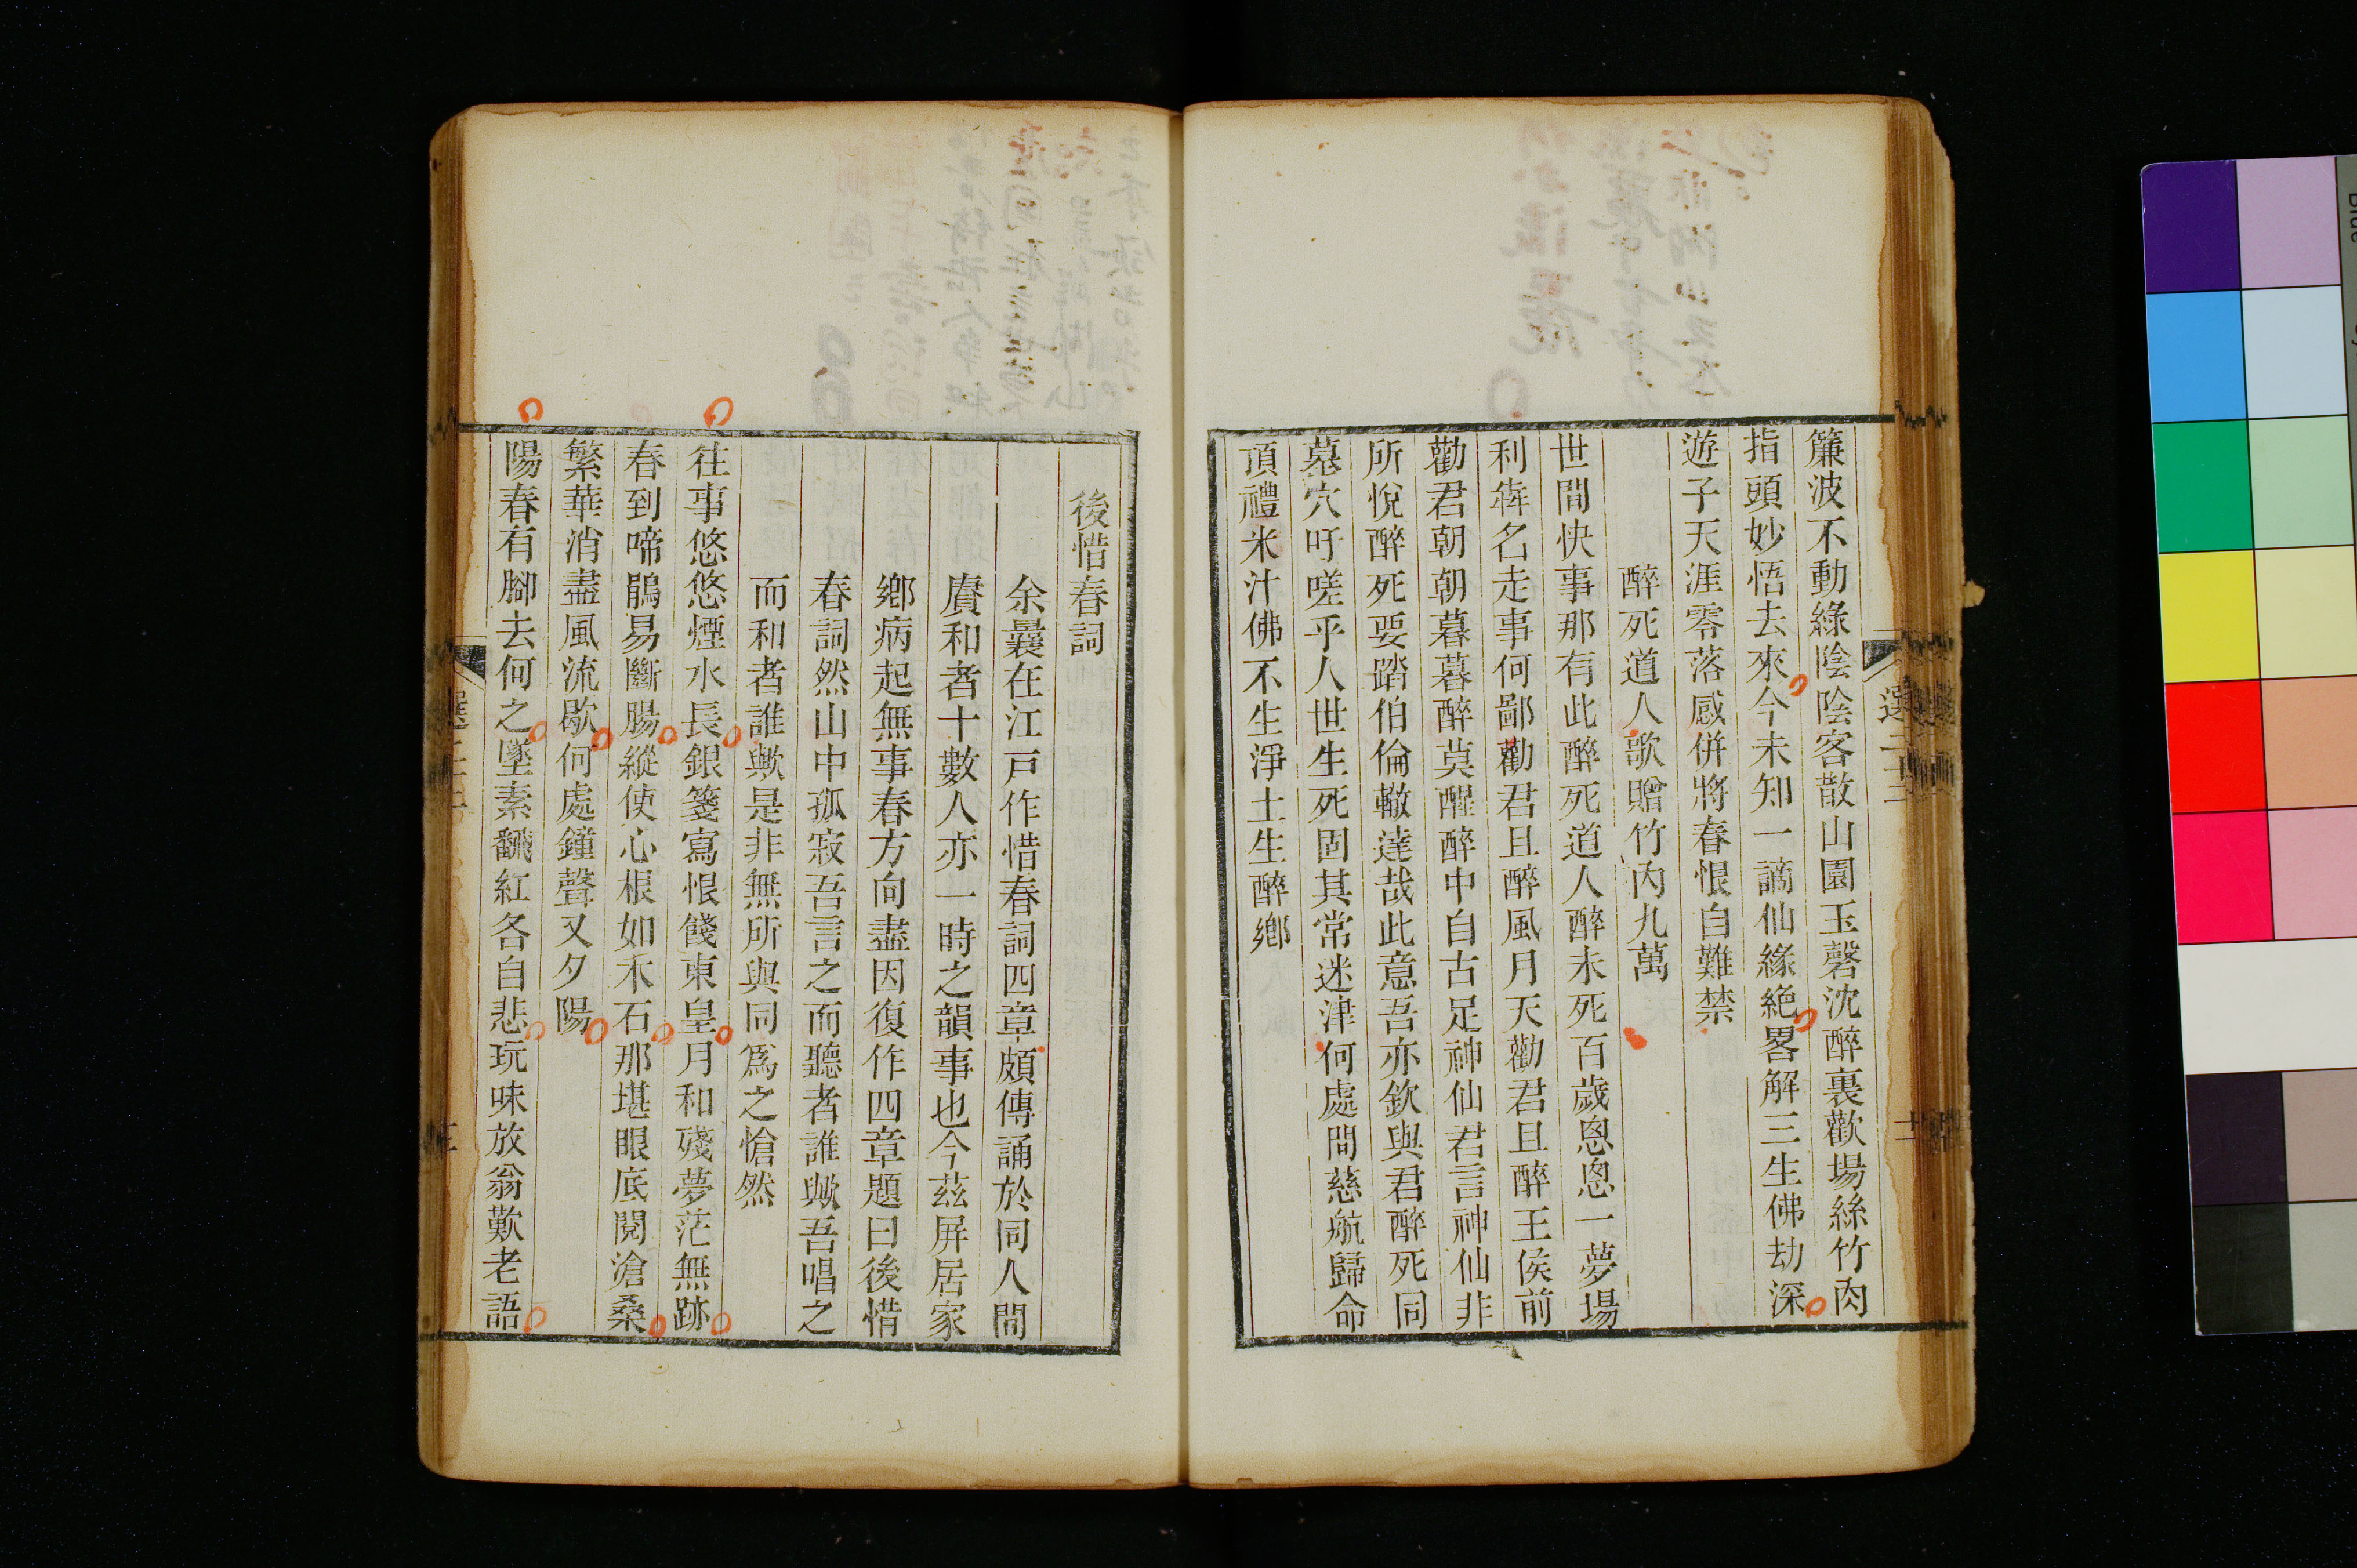 簾波不動綠陰陰客散山園玉磬沈醉裏歡場絲竹肉
指頭妙悟去來今未知一謫仙緣絶畧解三生佛劫深
遊子天涯零落感併將春恨自難禁
醉死道人歌贈竹內九萬
世間快事那有此醉死道人醉未死百歲悤悤一夢場
利牽名走事何鄙勸君且醉風月天勸君且醉王侯前
勸君朝朝暮暮醉莫醒醉中自古足神仙君言神仙非
所悅醉死要踏伯倫轍達哉此意吾亦欽與君醉死同
墓穴吁嗟乎人世生死固其常迷津何處問慈航歸命
頂禮米汁佛不生淨土生醉鄉
選二十二
後惜春詞
余曩在江戸作惜春詞四章頗傳誦於同人間
賡和者十數人亦一時之韻事也今茲屏居家
鄉病起無事春方向盡因復作四章題曰後惜
春詞然山中孤寂吾言之而聽者誰歟吾唱之
而和者誰歟是非無所與同爲之愴然
往事悠悠煙水長銀箋寫恨餞東皇月和殘夢茫無跡
春到啼鵑易斷腸縱使心根如禾石那堪眼底閱滄桑
繁華消盡風流歇何處鐘聲又夕陽
陽春有腳去何之墜素飜紅各自悲玩味放翁歎老語